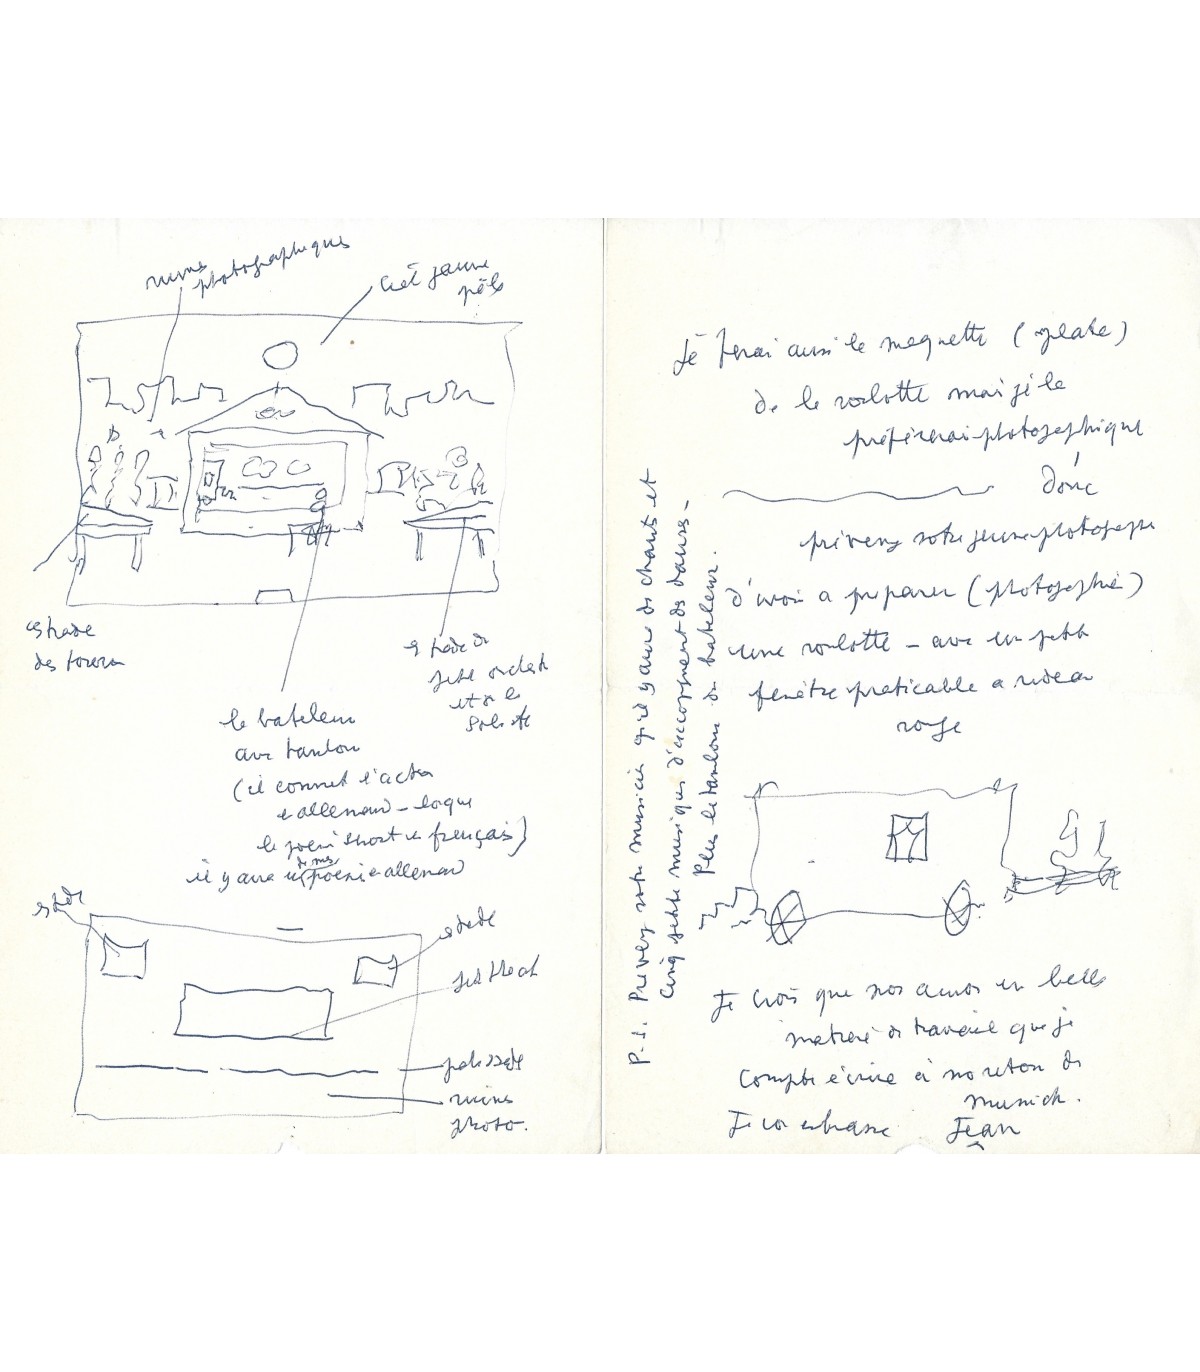 ruines
photographiques
Ciel jaune
pâle
estrade
des
estrade du
petit orchestre
et de le
soliste
le bateleur
avec tambour
(il connait l'action
en allemand –
le poème étant en français)
il y aura un poème en allemand
estrade
estrade
petit théat
palissade
ruines
photo.
Je ferai aussi la maquette (plate)
de la roulotte mais je la
préférerai photographique
donc
prévenez votre jeune photographe
d'avoir a preparer (photographie)
une roulotte – avec un petite
fenêtre praticable a rideau
rouge
Je crois que nous avons un belle
matière de travail que je
compte écrire à mon retour de
Munich.
Je vous embrasse
Jean
P.S. Prévenez votre musicien qu'il y aura des chants et
cinq petites musiques d'accompagnement des danses –
Plus le tambour du bateleur.